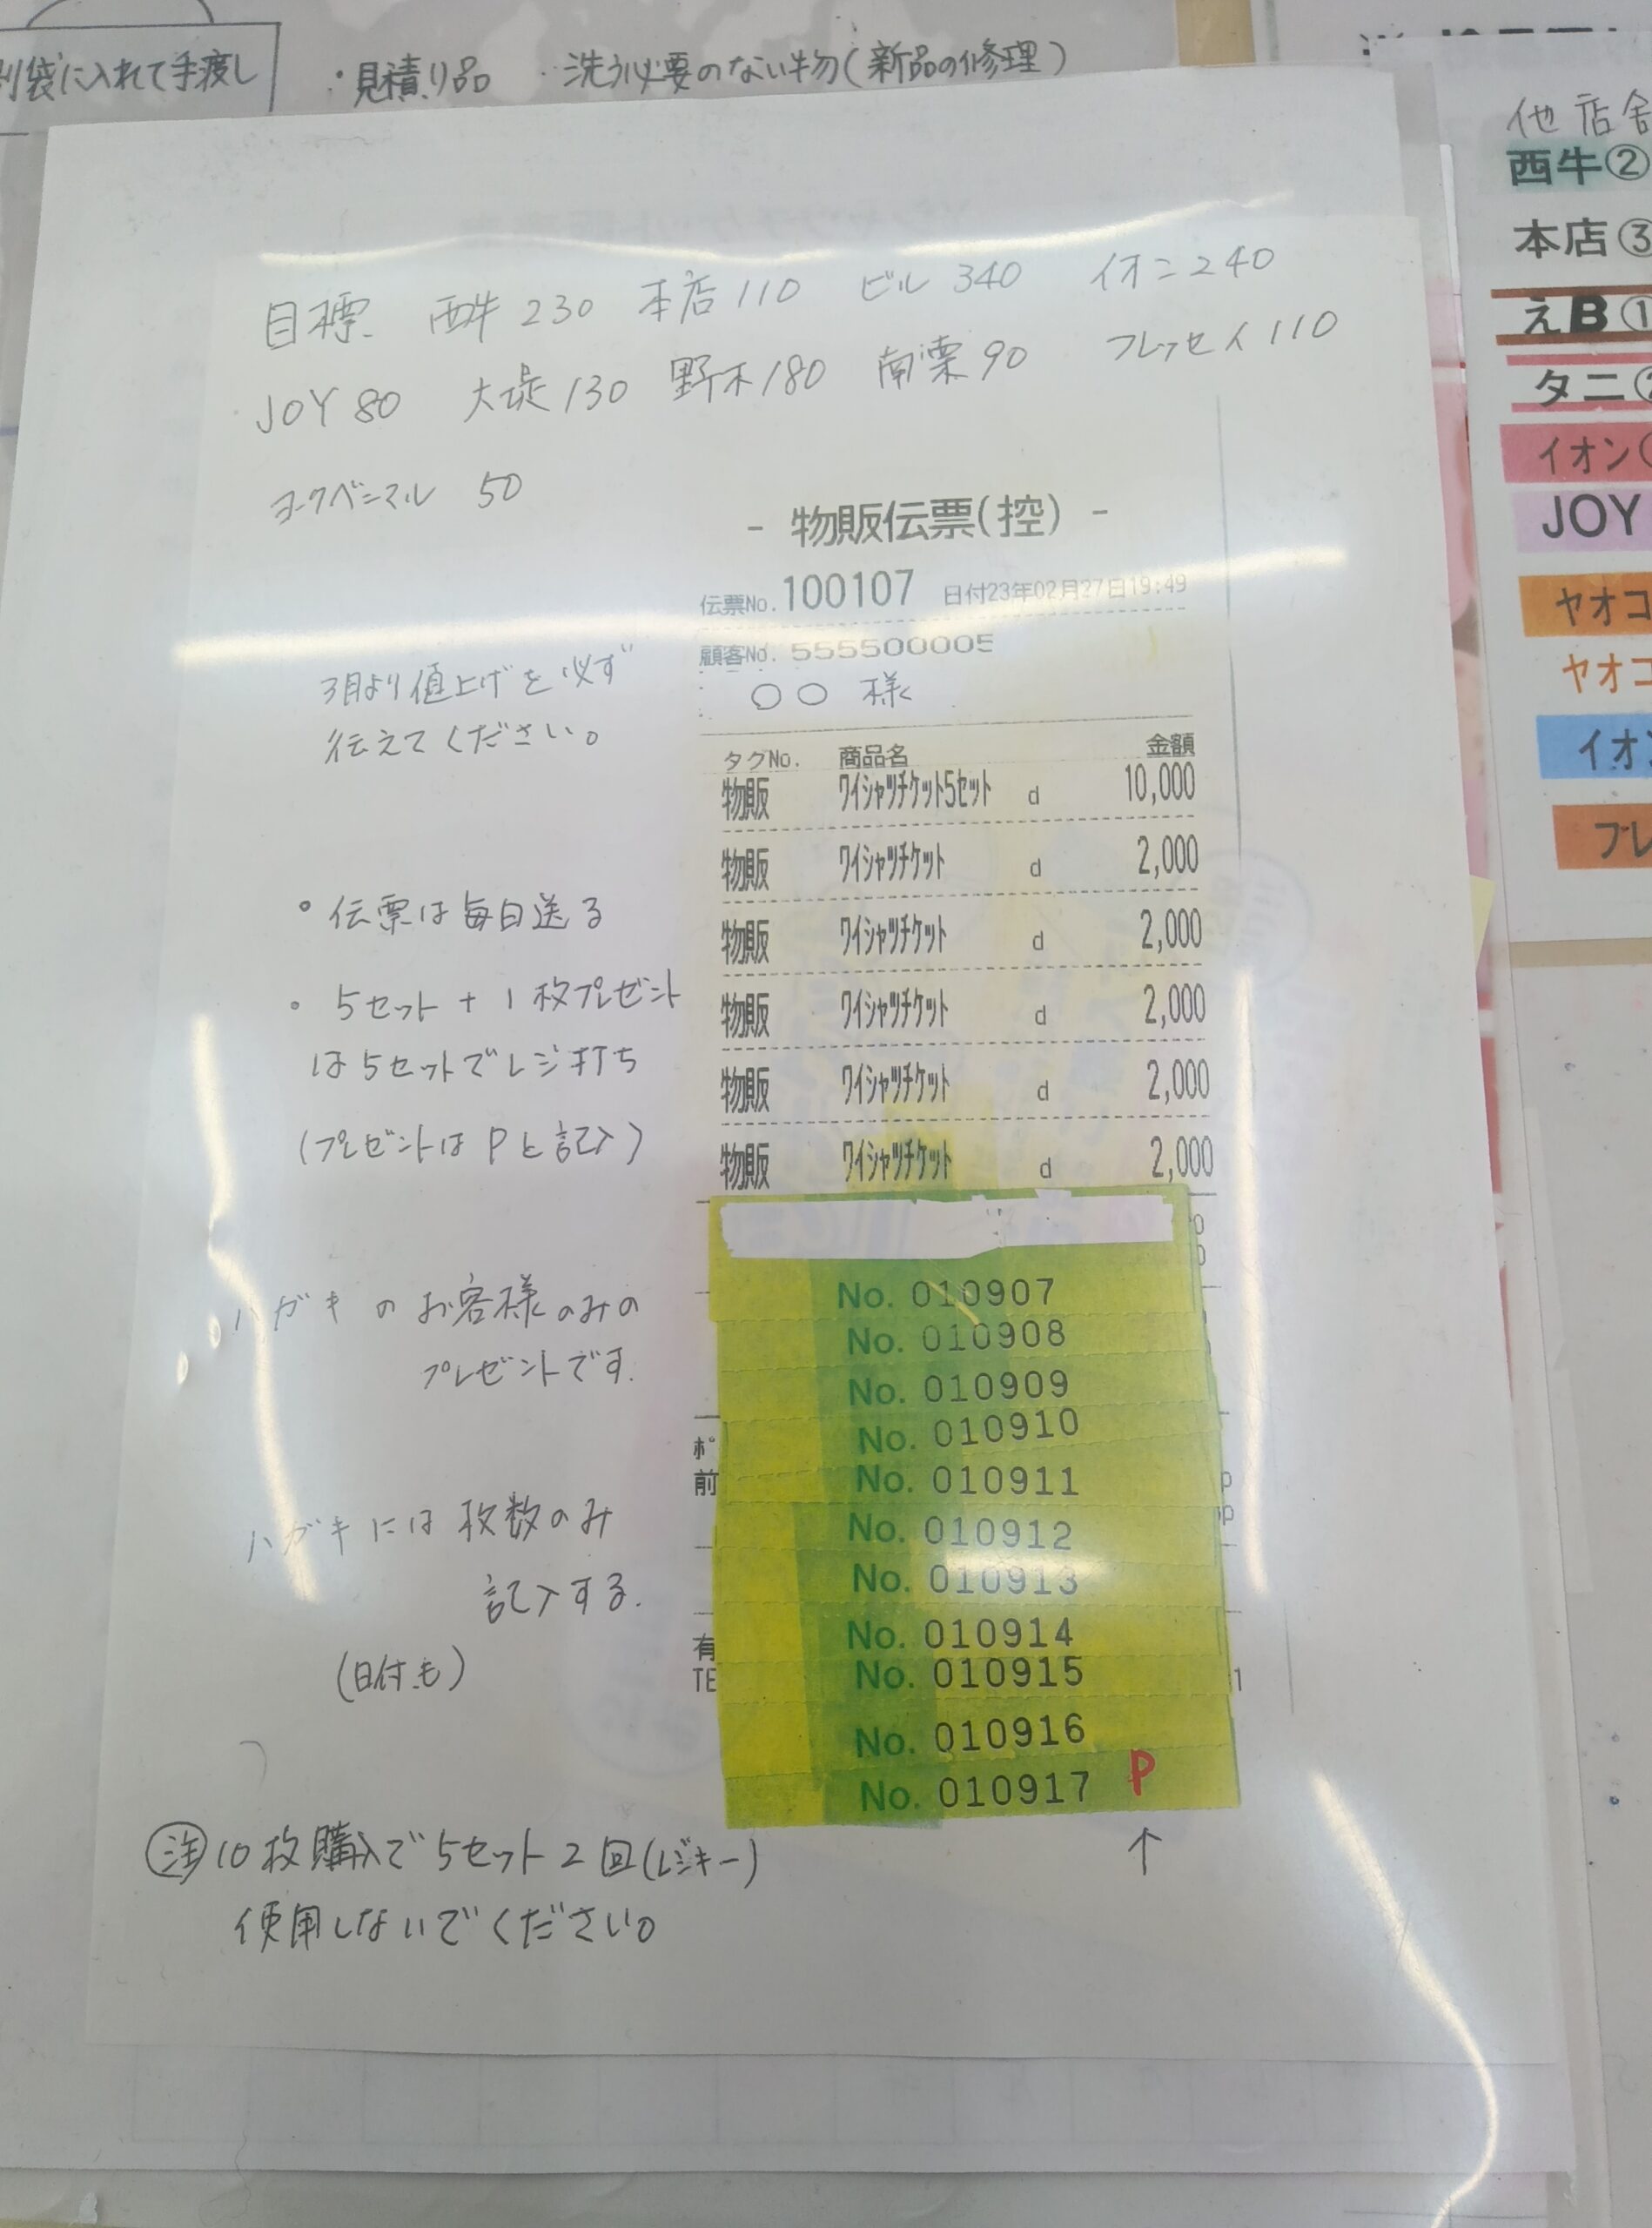 袋に入れて手渡し
・見積り品 ・洗う必要のない物(新品の修理)
目標 西牛230 本店110 ビル340 イオン240
JOY80 大堤130 野木180 南栗90 フレッセイ110
ヨークベニマル 50
- 物販伝票(控) -
伝票No.100107 日付23年02月27日19:49
顧客No. 555500005
○○ 様
3月より値上げを必ず
伝えてください。
タグNo. 商品名 金額
物販 ワイシャツチケット5セット d 10,000
物販 ワイシャツチケット d 2,000
物販 ワイシャツチケット d 2,000
物販 ワイシャツチケット d 2,000
物販 ワイシャツチケット d 2,000
物販 ワイシャツチケット d 2,000
・伝票は毎日送る
・5セット+1枚プレゼント
は5セットでレジ打ち
(プレゼントはPと記入)
ハガキのお客様のみの
プレゼントです.
ハガキには枚数のみ
記入する.
(日付も)
No. 010907
No. 010908
No. 010909
No. 010910
No. 010911
No. 010912
No. 010913
No. 010914
No. 010915
No. 010916
No. 010917 P
↑
ポ
前
有
TE
注 10枚購入で5セット2回(レジキー)
使用しないでください。
他店舎
西牛②
本店③
えB①
タニ
イオン
JOY
ヤオコ
ヤオコ
イオ
フレ